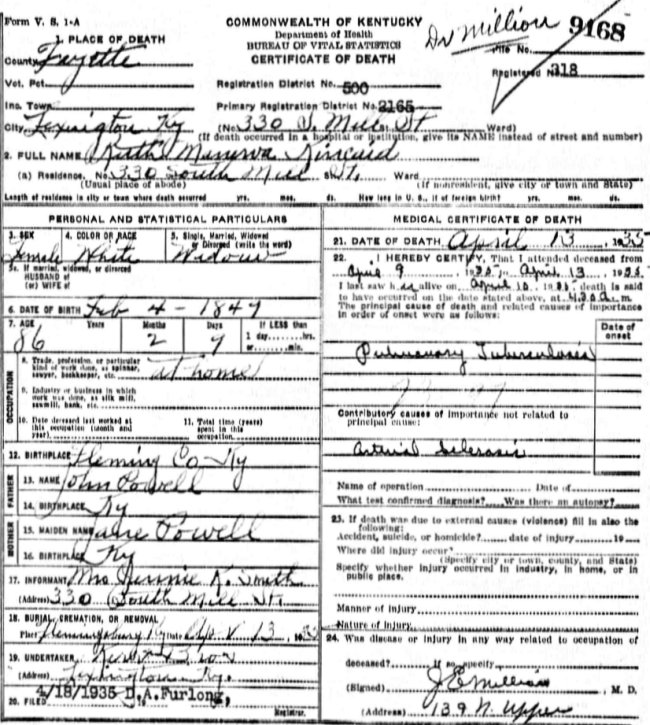 Form V. S. 1-A
COMMONWEALTH OF KENTUCKY
Department of Health
BUREAU OF VITAL STATISTICS
CERTIFICATE OF DEATH
Dr Million
File No. 9168
Registered No. 318
1. PLACE OF DEATH
County Fayette
Vot. Pct
Inc. Town
City Lexington Ky
Registration District No. 500
Primary Registration District No. 2165
(No. 330 S. Mill St St. Ward)
(If death occurred in a hospital or institution, give its NAME instead of street and number)
2. FULL NAME Ruth Minerva Kincaid
(a) Residence. No. 330 South Mill St. Ward
(Usual place of abode) (If nonresident, give city or town and State)
Length of residence in city or town where death occurred yrs. mos. ds. How long in U. S., if of foreign birth? yrs. mos. ds.
PERSONAL AND STATISTICAL PARTICULARS
3. SEX 4. COLOR OR RACE 5. Single, Married, Widowed
or Divorced (write the word)
Female White Widow
5a. If married, widowed, or divorced
HUSBAND of
(or) WIFE of
6. DATE OF BIRTH Feb 4 - 1849
7. AGE Years Months Days If LESS than
1 day, hrs.
or min.
86 2 9
OCCUPATION
8. Trade, profession, or particular
kind of work done, as spinner,
sawyer, bookkeeper, etc. at home
9. Industry or business in which
work was done, as silk mill,
sawmill, bank, etc.
10. Date deceased last worked at
this occupation (month and
year)
11. Total time (years)
spent in this
occupation
12. BIRTHPLACE Fleming Co - Ky
FATHER
13. NAME John Powell
14. BIRTHPLACE Ky
MOTHER
15. MAIDEN NAME Jane Powell
16. BIRTHPLACE Ky
17. INFORMANT Mrs K. Smith
(Address) 330 South Mill St.
18. BURIAL, CREMATION, OR REMOVAL
Place Flemingsburg Ky Date Apr 13, 1935
19. UNDERTAKER
(Address) Lexington Ky.
20. FILED 4/18/1935 D.A.Furlong,
Registrar.
MEDICAL CERTIFICATE OF DEATH
21. DATE OF DEATH April 13, 1935
22. I HEREBY CERTIFY, That I attended deceased from
April 9, 1935 to April 13, 1935
I last saw her alive on April 1935 death is said
to have occurred on the date stated above, at 4.30 a.m.
The principal cause of death and related causes of importance
in order of onset were as follows:
Date of
onset
Pulmonary Tuberculosis
Contributory causes of importance not related to
principal cause:
Arterial Sclerosis
Name of operation Date of
What test confirmed diagnosis? Was there an autopsy?
23. If death was due to external causes (violence) fill in also the
following:
Accident, suicide, or homicide? date of injury 19
Where did injury occur?
(Specify city or town, county, and State)
Specify whether injury occurred in industry, in home, or in
public place.
Manner of injury
Nature of injury
24. Was disease or injury in any way related to occupation of
deceased? If so, specify
(Signed) J E Million, M. D.
(Address) 139 N. Upper